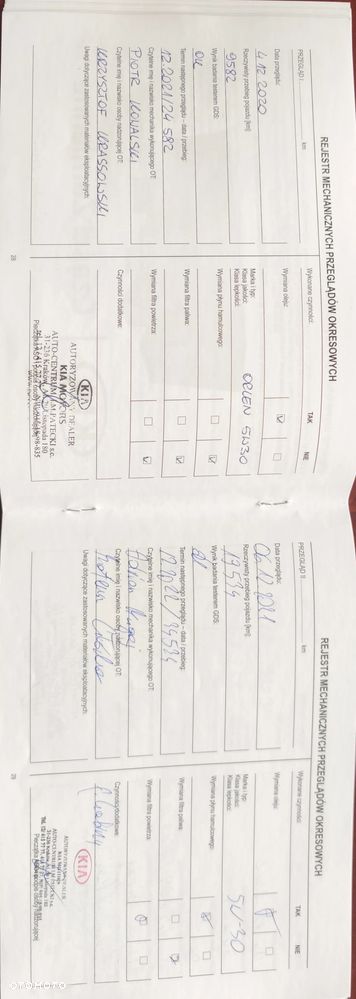 REJESTR MECHANICZNYCH PRZEGLĄDÓW OKRESOWYCH
PRZEGLĄD I
km
Data przeglądu:
4.12.2020
Rzeczywisty przebieg pojazdu [km]:
9582
Wynik badania testerem GDS:
OK
Termin następnego przeglądu – data i przebieg:
12.2021/24 582
Czytelne imię i nazwisko mechanika wykonującego OT:
PIOTR KOWALSKI
Czytelne imię i nazwisko osoby nadzorującej OT:
KRZYSZTOF KRASSOWSKI
Uwagi dotyczące zastosowanych materiałów eksploatacyjnych:
28
Wykonane czynności:
TAK
NIE
Wymiana oleju:
Marka i typ:
Klasa jakości:
Klasa lepkości:
ORLEN 5W30
Wymiana płynu hamulcowego:
Wymiana filtra paliwa:
Wymiana filtra powietrza:
Czynności dodatkowe:
KIA
AUTORYZOWANY DEALER
KIA MOTORS
AUTO-CENTRUM J.M.PATECKI s.c.
REJESTR MECHANICZNYCH PRZEGLĄDÓW OKRESOWYCH
PRZEGLĄD II
km
Data przeglądu:
06.12.2021
Rzeczywisty przebieg pojazdu [km]:
19534
Wynik badania testerem GDS:
Termin następnego przeglądu – data i przebieg:
Czytelne imię i nazwisko mechanika wykonującego OT:
Czytelne imię i nazwisko osoby nadzorującej OT:
Uwagi dotyczące zastosowanych materiałów eksploatacyjnych:
29
Wykonane czynności:
TAK
NIE
Wymiana oleju:
Marka i typ:
Klasa jakości:
Klasa lepkości:
5W-30
Wymiana płynu hamulcowego:
Wymiana filtra paliwa:
Wymiana filtra powietrza:
Czynności dodatkowe:
KIA
AUTORYZOWANY DEALER
KIA MOTORS
OTOMOTO